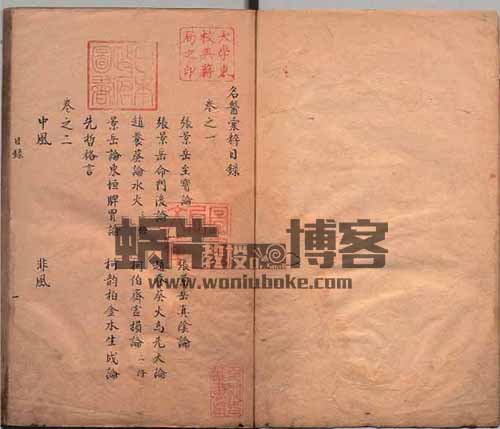 大學東校典籍局之印
名醫彙粹目錄
卷之一
張景岳至寶論 張景岳真陰論
張景岳命門論 趙養葵火為先天論
趙養葵論水火 伯齋虛損論
景岳論東垣脾胃論 柯韵伯金水生成論
先哲格言
卷之二
中風 非風
目錄 一
蜗牛博客
www.woniuboke.com